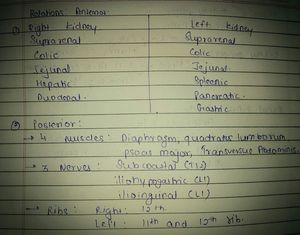 Relations Anterior
① Right Kidney Left Kidney
Suprarenal Suprarenal
Colic Colic
Jejunal Jejunal
Hepatic Splenic
Duodenal Pancreatic
Gastric
② Posterior :
→ 4 Muscles : Diaphragm, quadratus lumborum
psoas major, Transversus
→ 3 Nerves : Subcostal (T12)
iliohypogastric (L1)
ilioinguinal (L1)
→ Ribs : Right : 12th
Left : 11th and 12th rib.